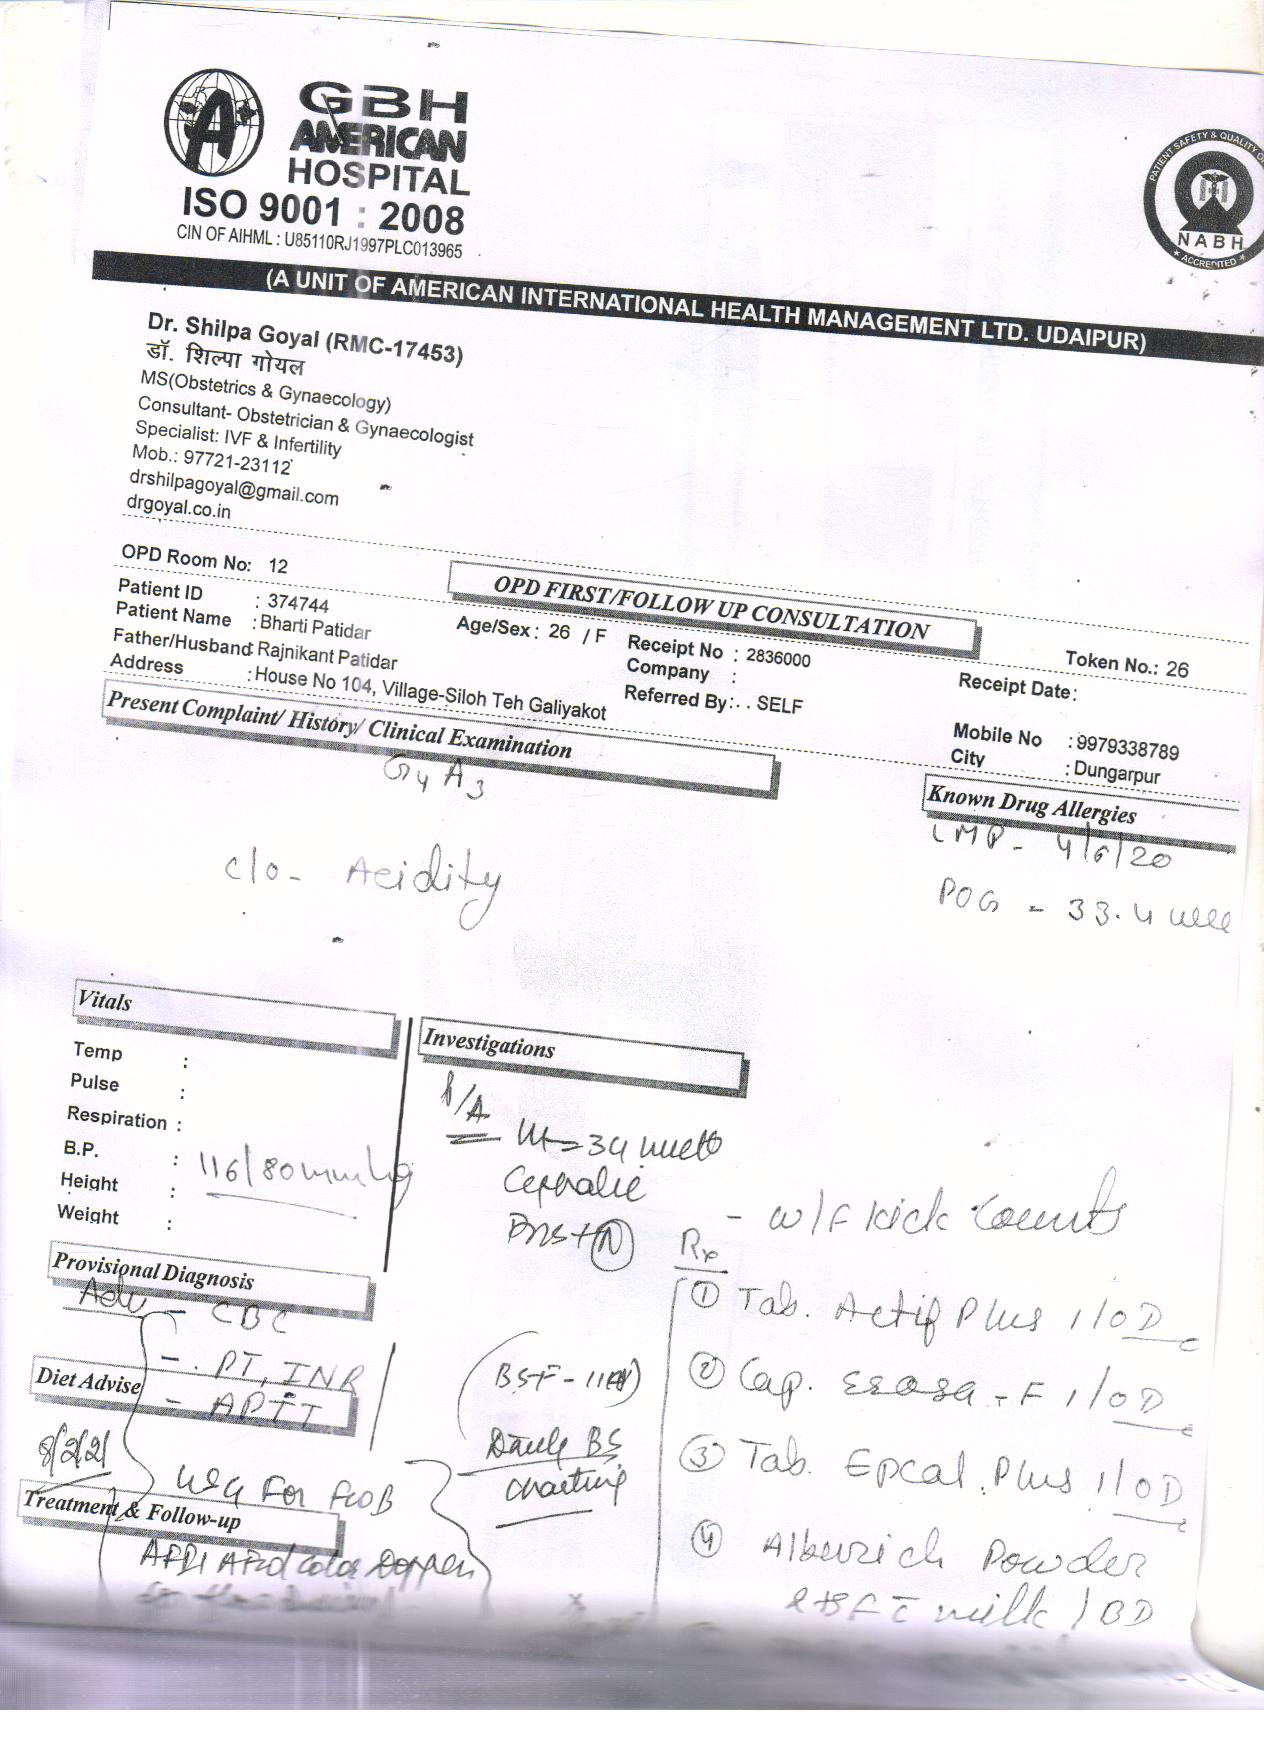 GBH
AMERICAN
HOSPITAL
ISO 9001 : 2008
CIN OF AIHML : U85110RJ1997PLC013965
PATIENT SAFETY & QUALITY OF
NABH
ACCREDITED
(A UNIT OF AMERICAN INTERNATIONAL HEALTH MANAGEMENT LTD. UDAIPUR)
Dr. Shilpa Goyal (RMC-17453)
डॉ. शिल्पा गोयल
MS(Obstetrics & Gynaecology)
Consultant- Obstetrician & Gynaecologist
Specialist: IVF & Infertility
Mob.: 97721-23112
drshilpagoyal@gmail.com
drgoyal.co.in
OPD Room No: 12
OPD FIRST/FOLLOW UP CONSULTATION
Token No.: 26
Patient ID : 374744
Patient Name : Bharti Patidar
Age/Sex : 26 / F
Receipt No : 2836000
Receipt Date:
Father/Husband: Rajnikant Patidar
Company :
Address : House No 104, Village-Siloh Teh Galiyakot
Referred By: . . SELF
Mobile No : 9979338789
City : Dungarpur
Present Complaint/ History/ Clinical Examination
Known Drug Allergies
G4 A3
LMP - 4/6/20
POG - 33.4 week
c/o - Acidity
Vitals
Temp :
Pulse :
Respiration :
B.P. : 116/80mmHg
Height :
Weight :
Investigations
P/A
34 weeks
Cephalic
- w/f kick counts
Rx
① Tab. Actif Plus 1/OD
② Cap. Esosa - F 1/OD
③ Tab. Epcal Plus 1/OD
④ Alburich Powder
milk / BD
Provisional Diagnosis
Adv - CBC
- PT, INR
- APTT
Diet Advise
8/2/21
BSF - 110
Daily BS
charting
USG For FWB
Treatment & Follow-up
AFI And color Doppler